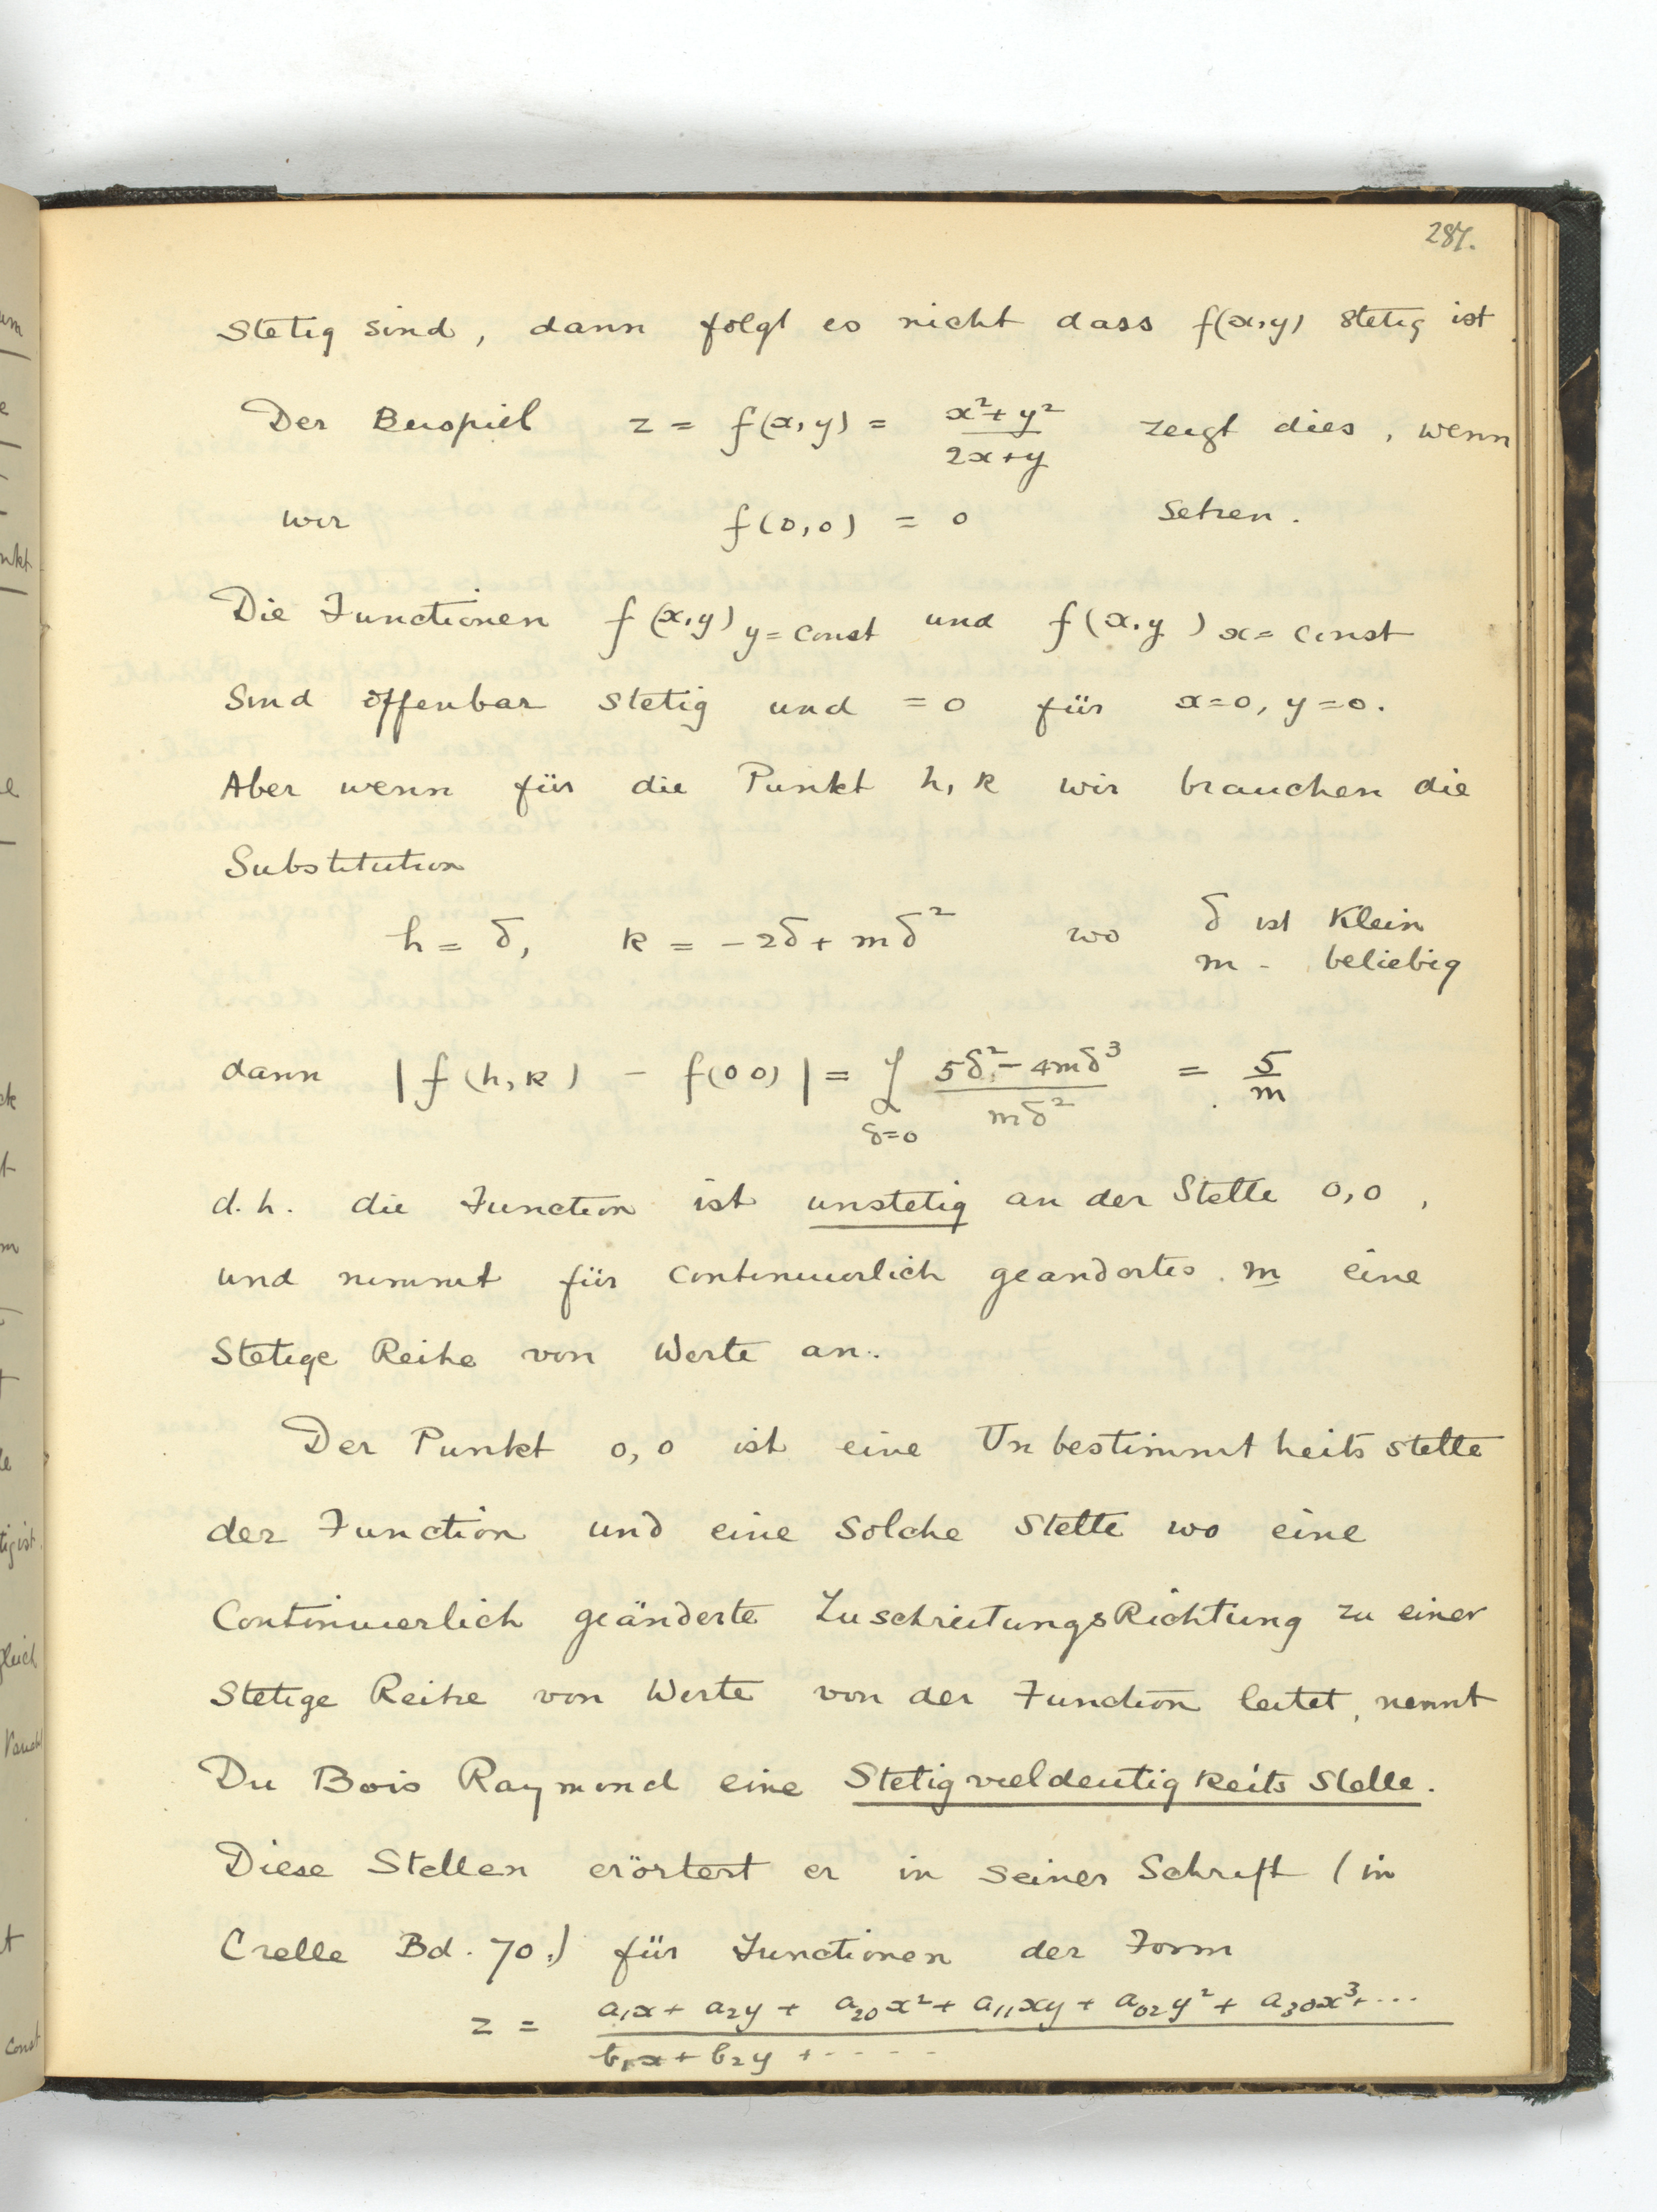 287.
Stetig sind, dann folgt es nicht dass f(x,y) stetig ist.
Der Beispiel z = f(x,y) = (x²+y²)/(2x+y) zeigt dies, wenn
wir f(0,0) = 0 setzen.
Die Functionen f(x,y) y=const und f(x,y) x=const
sind offenbar stetig und =0 für x=0, y=0.
Aber wenn für die Punkt h, k wir brauchen die
Substitution
h = δ, k = -2δ + mδ² wo δ ist klein
m - beliebig
dann |f(h,k) - f(00)| = L δ=0 (5δ²-4mδ³)/(mδ²) = 5/m
d.h. die Function ist unstetig an der Stelle 0,0,
und nimmt für continuierlich geandertes m eine
Stetige Reihe von Werte an.
Der Punkt 0,0 ist eine Unbestimmtheitsstelle
der Function und eine solche Stelle wo eine
Continuierlich geänderte ZuschreitungsRichtung zu einer
Stetige Reihe von Werte von der Function leitet, nennt
Du Bois Raymond eine Stetigvieldeutigkeits Stelle.
Diese Stellen erörtert er in seiner Schrift (in
Crelle Bd. 70.) für Functionen der Form
z = (a₁x + a₂y + a₂₀x² + a₁₁xy + a₀₂y² + a₃₀x³+...)/(b₁x + b₂y + ....)